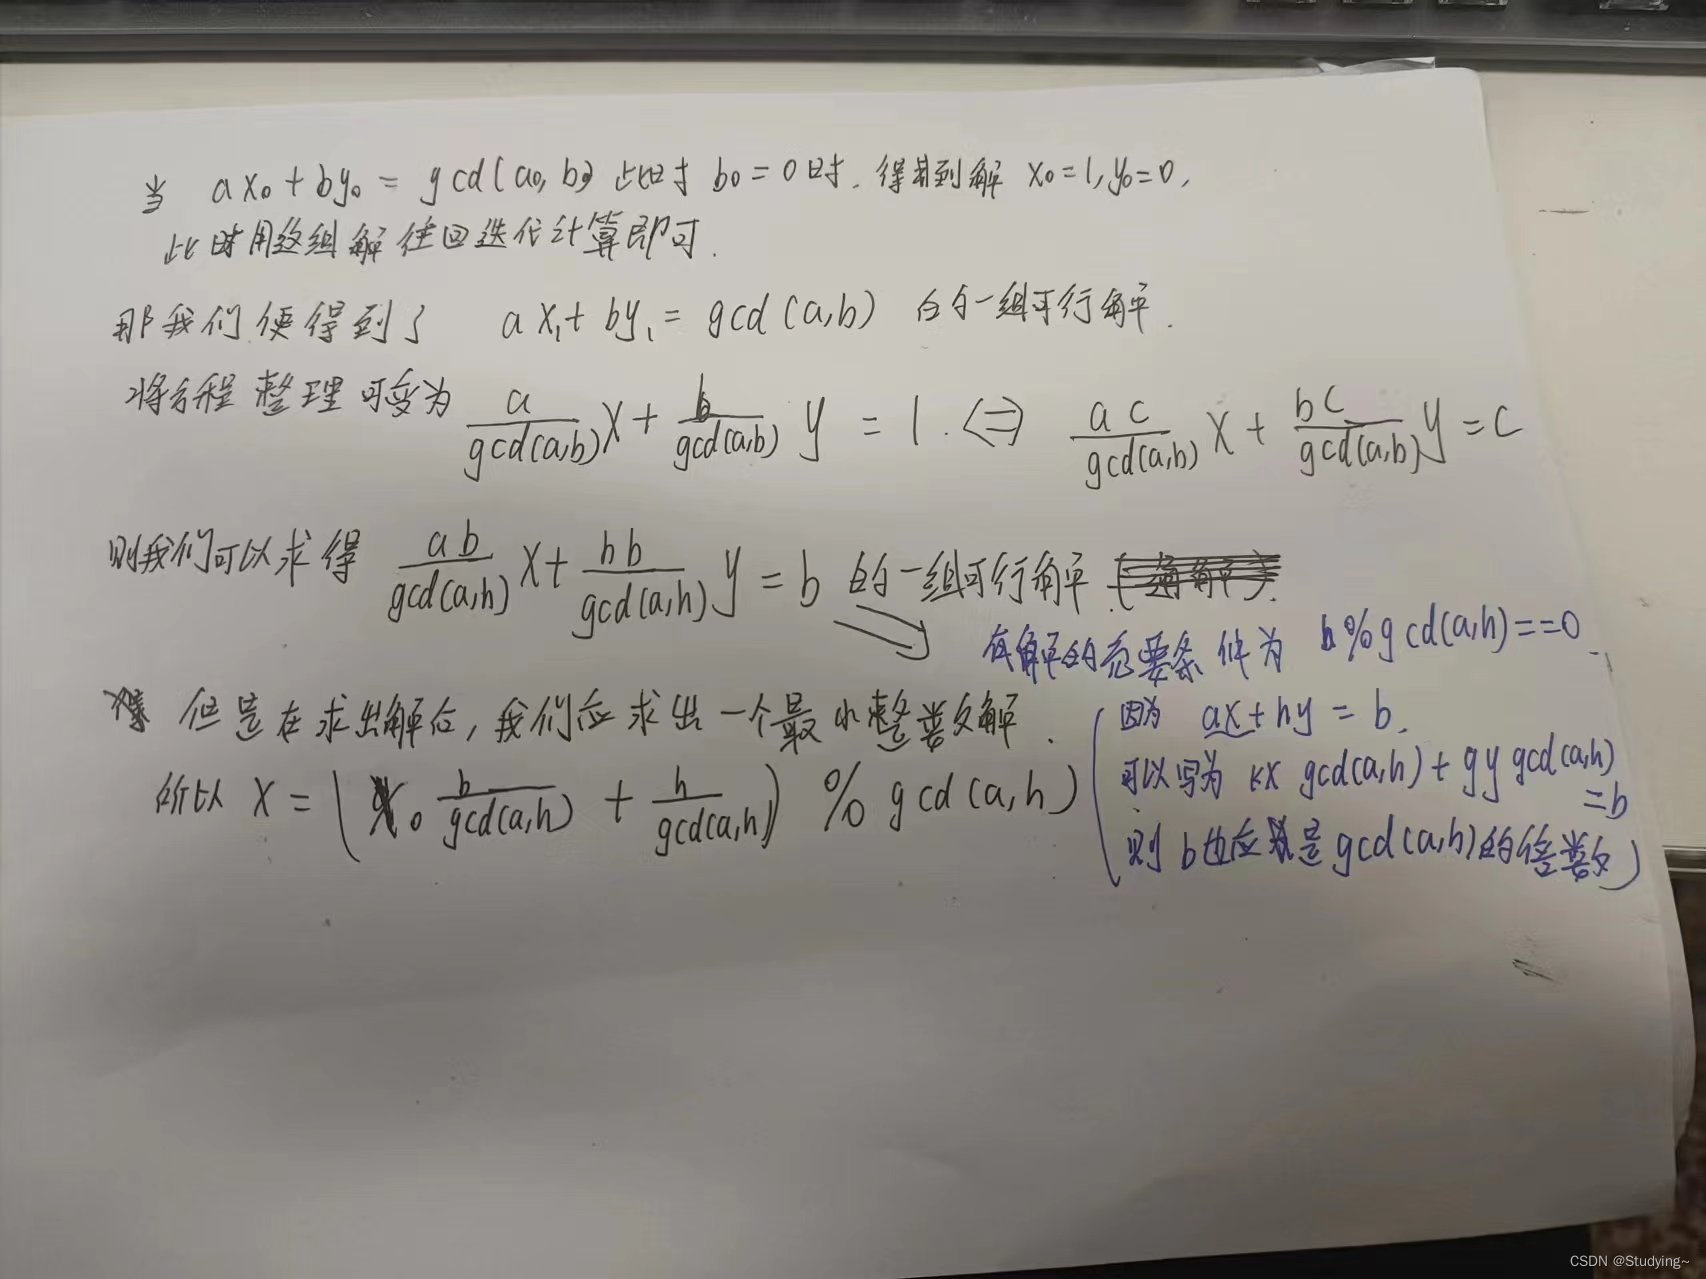 当 ax₀ + by₀ = gcd(a₀, b₀) 此时 b₀ = 0时. 得到解 x₀=1, y₀=0,
此时用这组解往回迭代计算即可.
那我们便得到了 ax₁ + by₁ = gcd(a,b) 的一组可行解.
将方程整理可变为 a/gcd(a,b) x + b/gcd(a,b) y = 1. <=> ac/gcd(a,b) x + bc/gcd(a,b) y = c
则我们可以求得 ab/gcd(a,h) x + hb/gcd(a,h) y = b 的一组可行解.
有解的充要条件为 b%gcd(a,h)==0.
但是在求出解后,我们应求出一个最小整数解.
所以 x = (x₀ b/gcd(a,h) + h/gcd(a,h)) % gcd(a,h)
(因为 ax+hy = b.
可以写为 kx gcd(a,h) + gy gcd(a,h)
=b
则 b也应是gcd(a,h)的倍数)
CSDN @Studying~